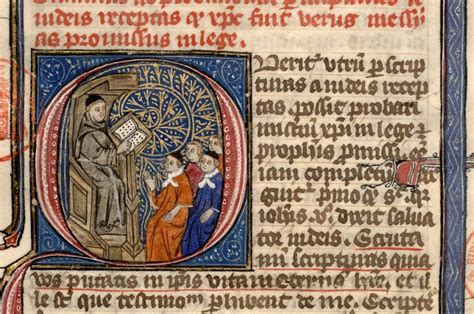 iudeis receptas qͥ xp̄c fuit verus messy
as promissus in lege.
Querit̉ utrū ꝑ scrip
turas a iudeis recep
tas possit probari
misteriū xp̄i in lege ⁊
prophīs ꝓmissū
iam completū
guit̉ pͥmo qͩ sic
iohīs v. dixit salua
tor iudeis. Scruta
mī scripturas quia
uos putatis in ip̄is vitam eternā hr̄e. et il
le sūt que testimoīū ꝑhibent de me. Scripte